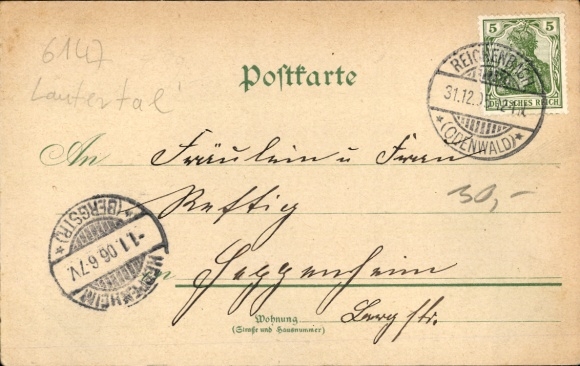 6147
Lautertal
Postkarte
5
DEUTSCHES REICH
REICHENBACH
31.12.05
*(ODENWALD)*
An Fräulein u Frau
30,-
Reftig
in Heppenheim
Bergstr.
Wohnung
(Straße und Hausnummer)
HEPPENHEIM
-1.1.06.6-7V.
*(BERGSTR)*